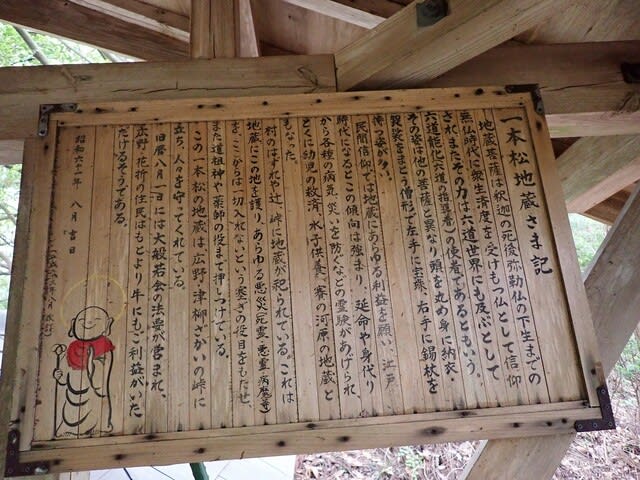 一本松地蔵さま記
地蔵菩薩は釈迦の死後弥勒仏の下生までの
無仏時代に衆生済度を受けもつ仏として信仰
されまたその力は六道世界にも及ぶとして
六道能化(六道の指導者)の使者であるともいう。
その姿は他の菩薩と異なり頭を丸め身に納衣・
袈裟をまとう僧形で左手に宝珠、右手に錫杖を
持つ姿が多い。
民間信仰では地蔵にあらゆる利益を願い、江戸
時代になるとこの傾向は強まり、延命や身代り
から各種の病気、災いを防ぐなどの霊験があげられ、
とくに幼児の救済、水子供養、賽の河原の地蔵と
もなった。
村のはずれや辻、峠に地蔵が祀られている。これは
地蔵にこの地を護り、あらゆる悪災(死霊・悪霊・病魔等)
を、ここからは一切入れないという塞での役目をもたせ、
また道祖神や薬師の役まで押しつけている。
この一本松の地蔵は、広野・津柳ざかいの峠に
立ち、人々を守ってくれている。
旧暦八月一日には大般若会の法要が営まれ、
広野・花折の住民はもとより牛にもご利益がいた
だけるそうである。
昭和六十一年 八月 吉日